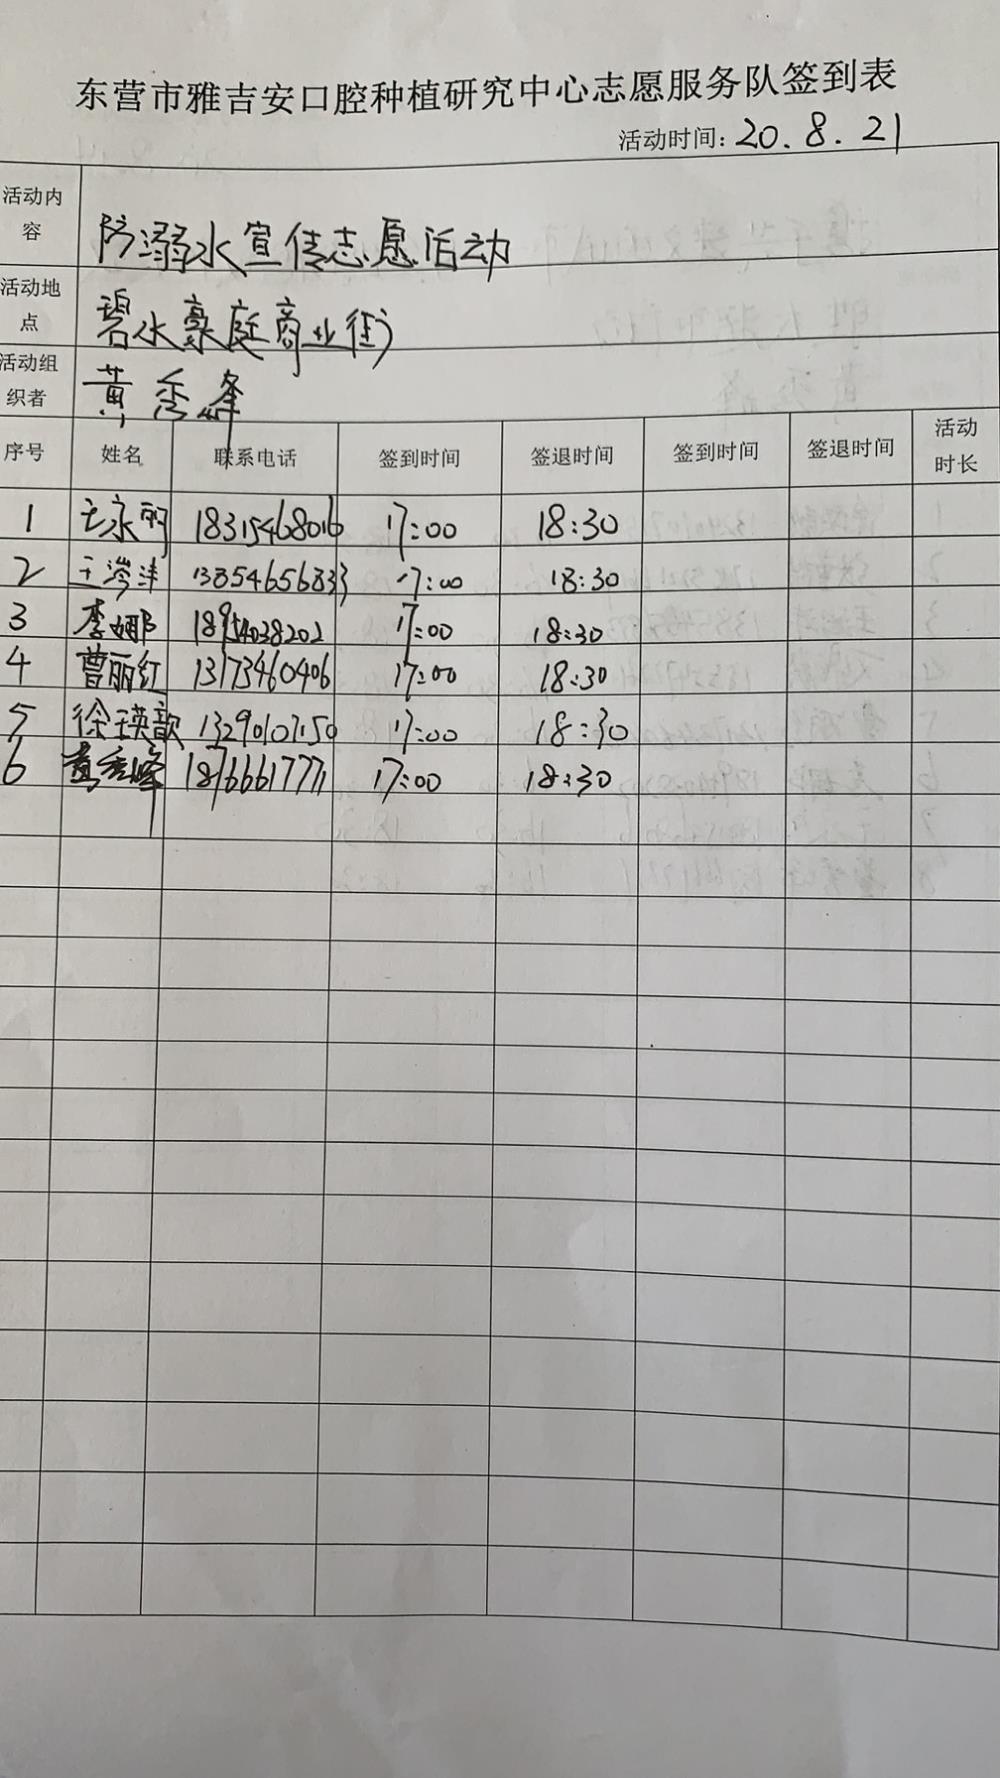 东营市雅吉安口腔种植研究中心志愿服务队签到表
活动时间: 20.8.21
活动内容 防溺水宣传志愿活动
活动地点 碧水豪庭商业街
活动组织者 黄秀峰
序号 姓名 联系电话 签到时间 签退时间 签到时间 签退时间 活动时长
1 王永丽 18315468016 17:00 18:30
2 王岑沣 13854656833 17:00 18:30
3 李娜 18954038202 17:00 18:30
4 曹丽红 13173460406 17:00 18:30
5 徐瑛歆 13290107150 17:00 18:30
6 黄秀峰 18766617771 17:00 18:30